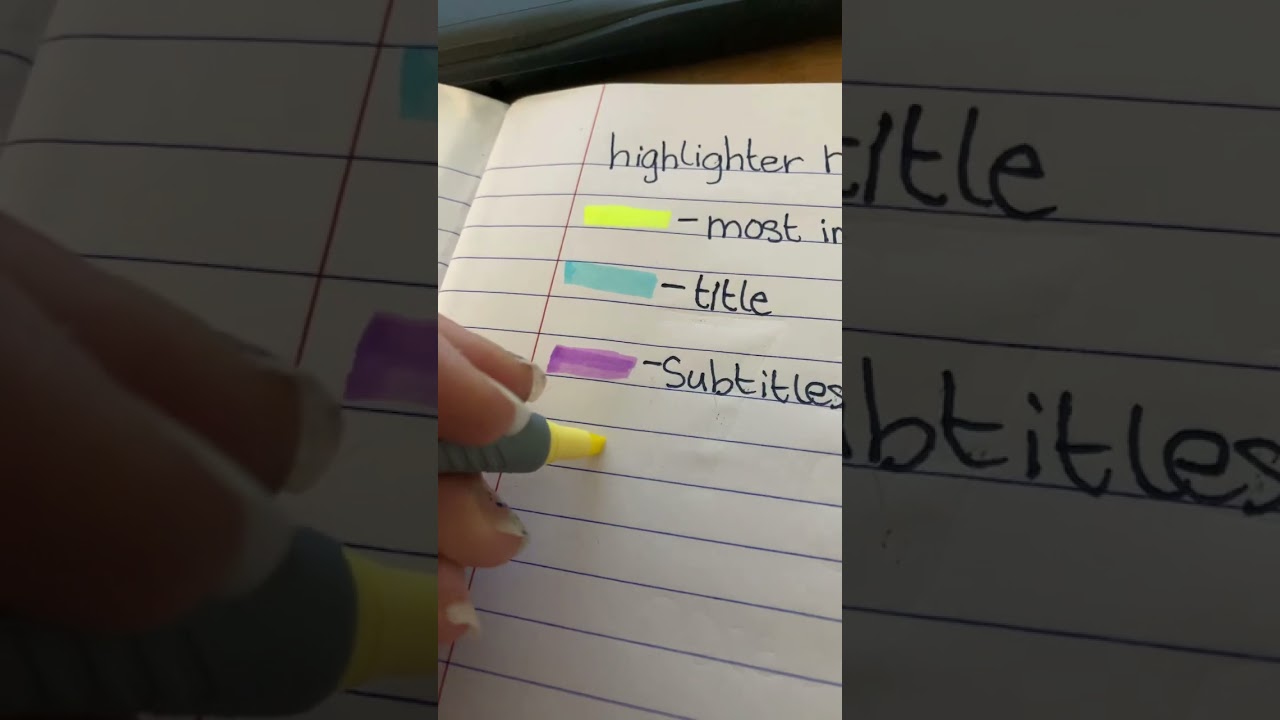 highlighter
- most
- title
- Subtitles